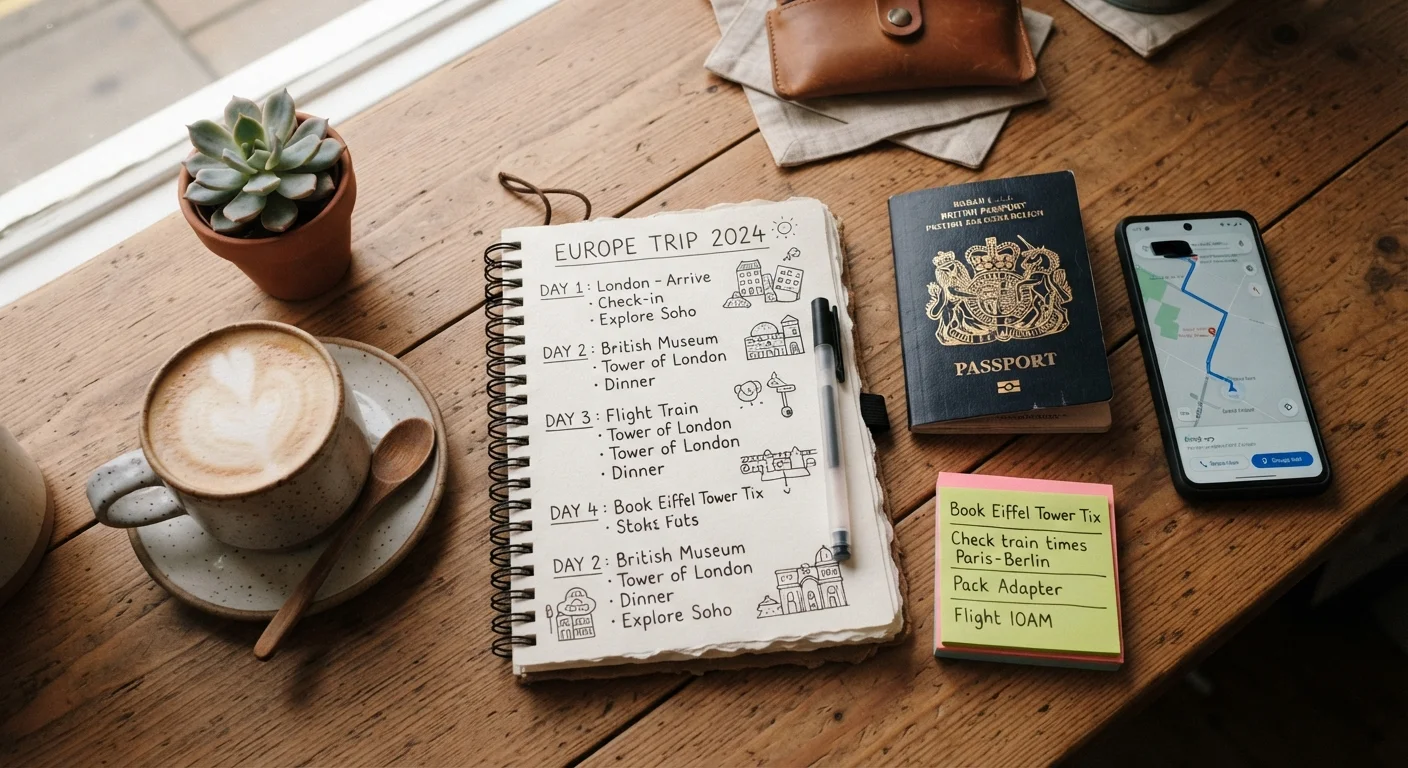 EUROPE TRIP 2024
DAY 1: London - Arrive
· Check-in
· Explore Soho
DAY 2: British Museum
· Tower of London
· Dinner
DAY 3: Flight Train
· Tower of London
· Tower of London
· Dinner
DAY 4: Book Eiffel Tower Tix
· Stoks Futs
DAY 2: British Museum
· Tower of London
· Dinner
· Explore Soho
BRITISH
PASSPORT
Book Eiffel Tower Tix
Check train times
Paris-Berlin
Pack Adapter
Flight 10AM